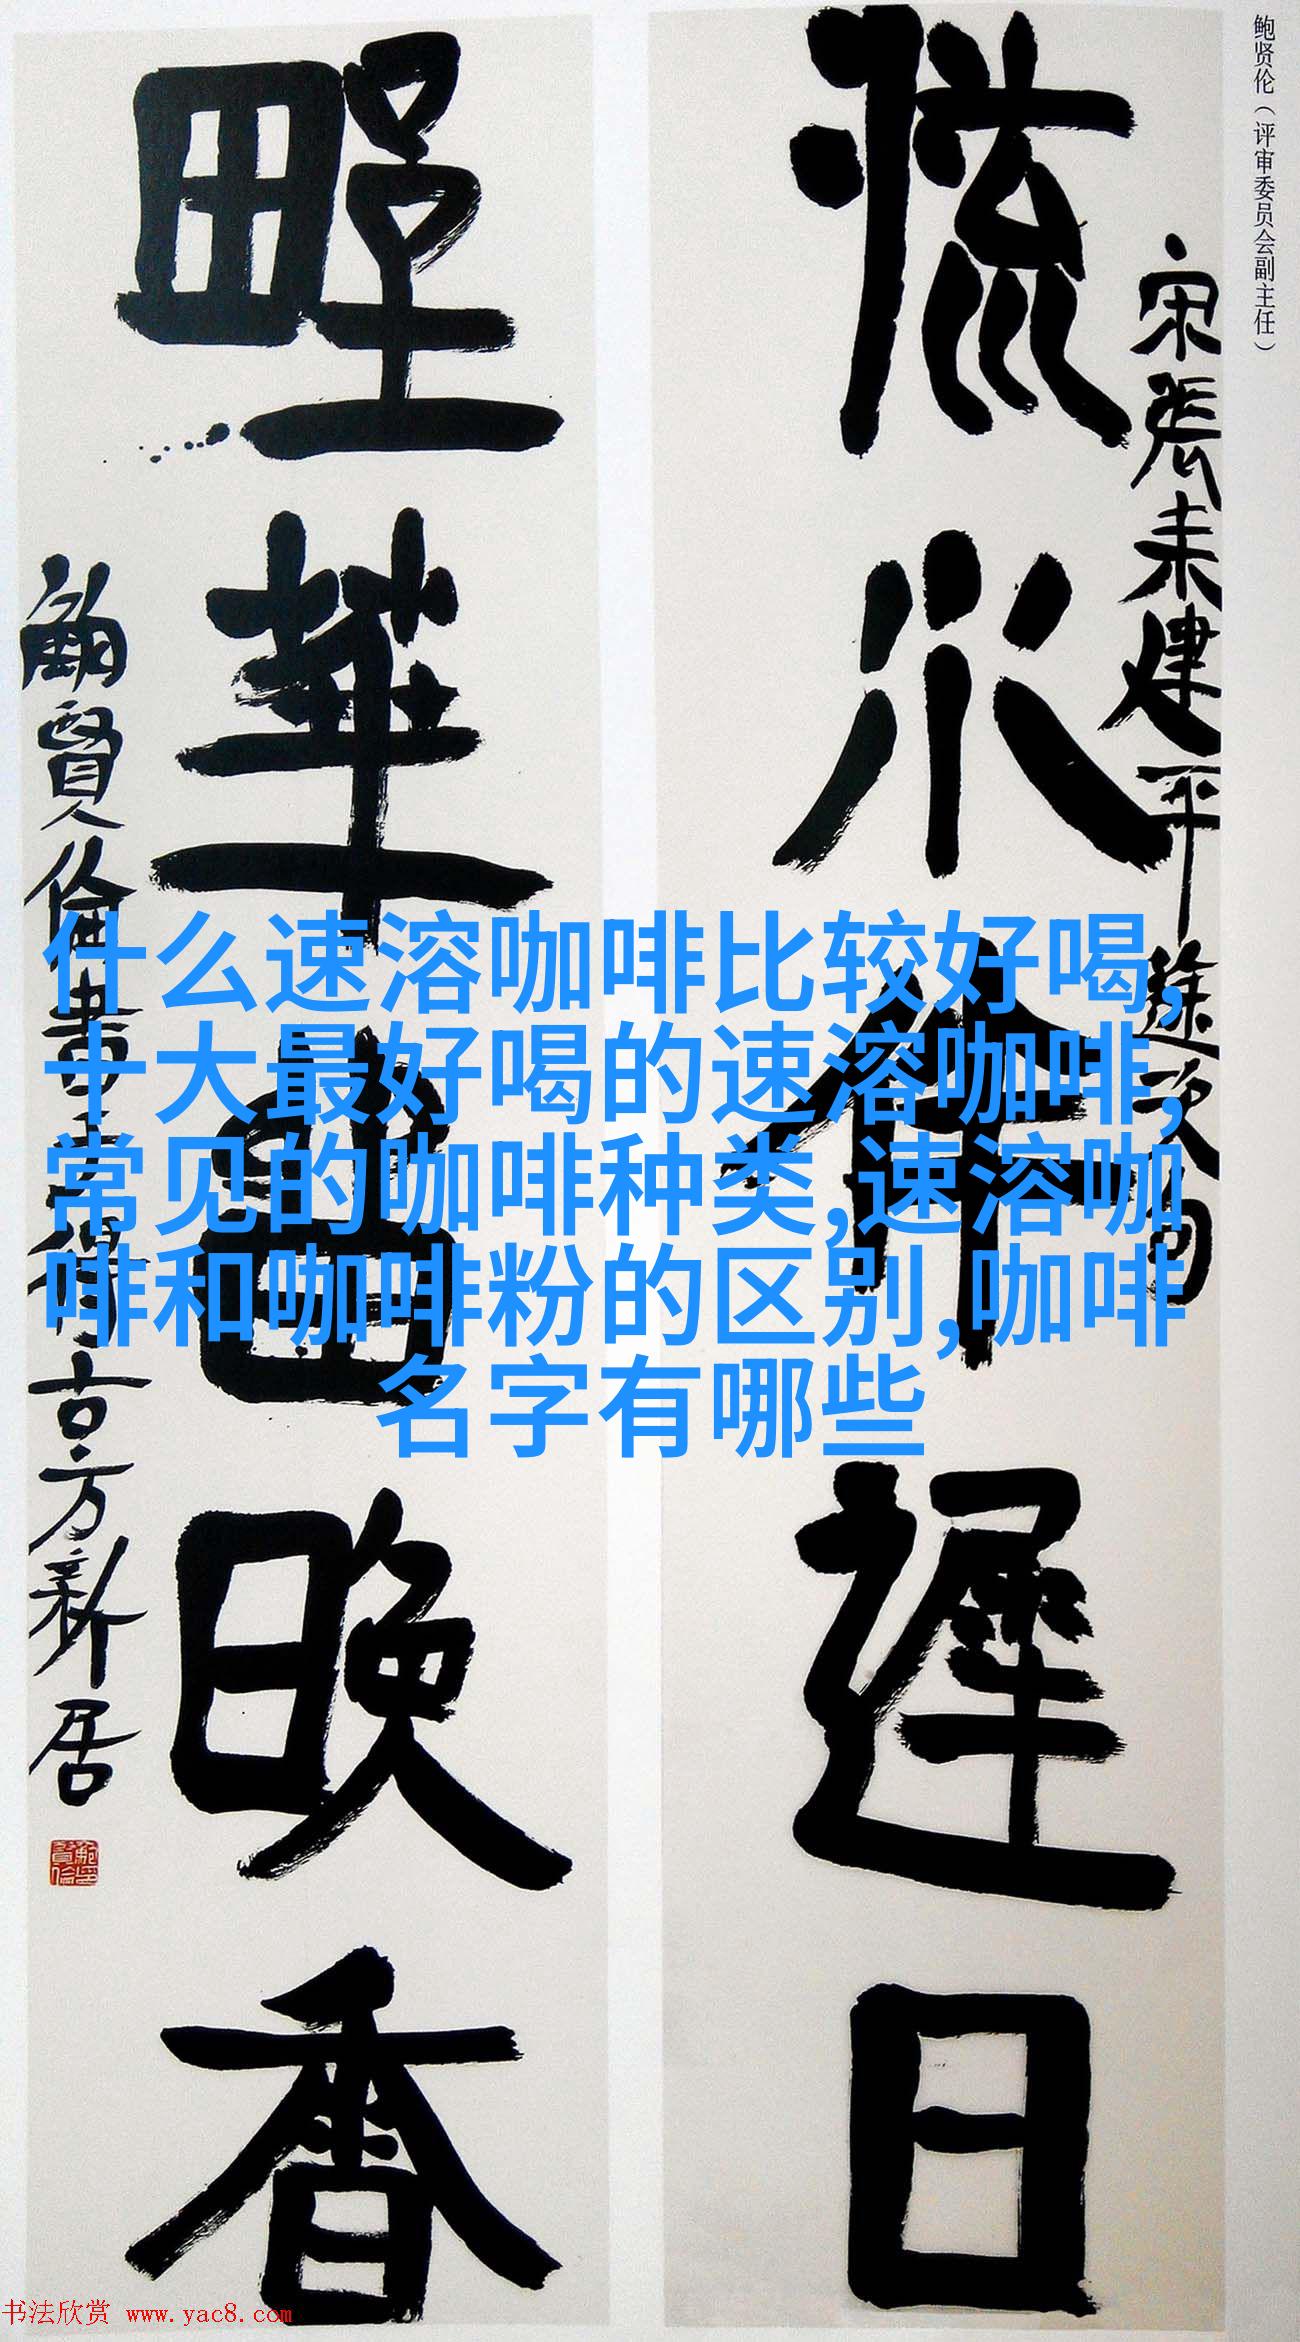 鲍贤伦（评审委员会副主任）
宋張耒建平途次句
水遲日
野華晚香
鮑賢倫書于得古方新居
什么速溶咖啡比较好喝,
十大最好喝的速溶咖啡,
常见的咖啡种类,速溶咖
啡和咖啡粉的区别,咖啡
名字有哪些
书法欣赏 www.yac8.com